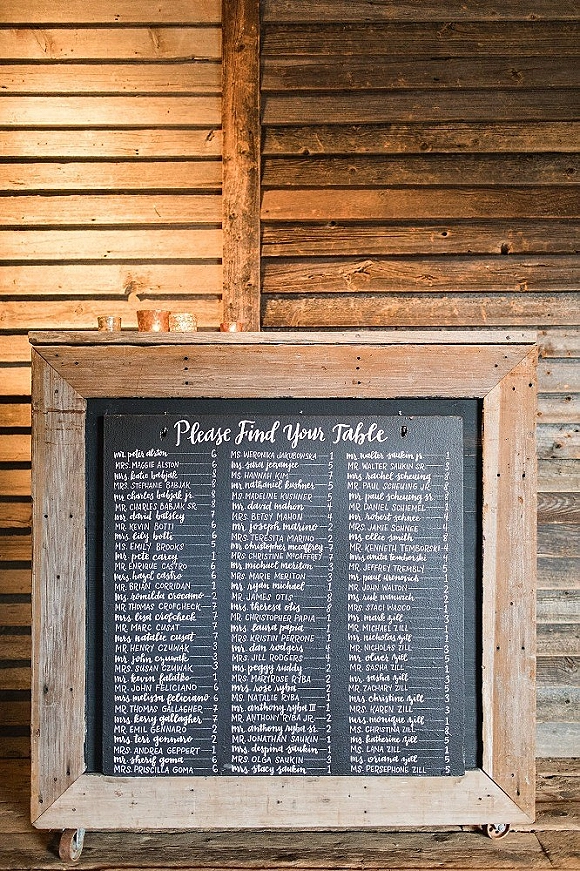 Please Find Your Table
mr. peter alston 6
MRS. MAGGIE ALSTON 6
mr. kato babjak 8
MRS. STEPHANIE BABJAK 8
mr. charles babjak jr. 8
MR. CHARLES BABJAK SR. 8
mr. david batsley 7
MR. KEVIN BOTTI 6
mrs. lily botti 6
MS. EMILY BROOKS 5
mr. pete carey 1
MR. ENRIQUE CASTRO 6
mrs. hazel castro 6
MR. BRIAN CORRIDAN 1
ms. romilda crocamo 2
MR. THOMAS CROPCHECK 7
mrs. lisa cropcheck 7
MR. MARC CUSAT 7
mrs. natalie cusat 7
MR. HENRY CZUWAK 3
mr. john czuwak 3
MRS. SUSAN CZUWAK 3
mr. kevin falatko 1
MR. JOHN FELICIANO 6
mrs. melissa feliciano 6
MR. THOMAS GALLAGHER 7
mrs. kerry gallagher 7
MR. EMIL GENNARO 2
mrs. teri gennaro 2
MRS. ANDREA GEPPERT 1
mr. sherif goma 6
MRS. PRISCILLA GOMA 6
MS. WERONIKA JAKUBOWSKA 1
mrs. sara jeevanjee 5
MS. HANNAH KIM 7
mr. nathaniel kushner 5
MS. MADELINE KUSHNER 5
mr. david mahon 4
MRS. BETSY MAHON 4
mr. joseph marino 2
MRS. TERESITA MARINO 2
mr. christopher mccaffrey 7
MRS. CHRISTINE MCCAFFREY 7
mr. michael meriton 3
MRS. MARIE MERITON 3
mr. ryan michael 1
MR. JAMES OTIS 8
mrs. theresa otis 8
MR. CHRISTOPHER PAPIA 1
mrs. laura papia 1
MRS. KRISTIN PERRONE 1
mr. dan rodgers 4
MRS. JILL RODGERS 4
ms. peggy ruddy
MRS. MARYROSE RYBA 2
mrs. rose ryba 2
MS. NATALIE RYBA 1
mr. anthony ryba III 1
MR. ANTHONY RYBA JR. 2
mr. anthony ryba sr. 2
MR. JONATHAN SAUKIN 1
mrs. despina saukin 1
MRS. OLGA SAUKIN 3
mrs. stacy saukin 1
mr. walter saukin jr. 1
MR. WALTER SAUKIN SR. 3
mrs. rachel scheuing 8
MR. PAUL SCHEUING JR. 8
mr. paul scheuing sr. 8
MR. DANIEL SCHEMEL 1
mr. robert schnee 4
MRS. JAMIE SCHNEE 4
ms. elle smith
MR. KENNETH TEMBORSKI 4
mrs. anita temborski 4
MR. JEFFREY TREMBLY 5
mr. paul
MR. JOHN WALTON 2
ms. sue
MRS. STACI WASCO 1
mr. mark zill
MR. MICHAEL ZILL 1
mr. nicholas zill
MR. NICHOLAS ZILL 3
mr. oliver zill 5
MR. SASHA ZILL
ms. sasha zill
MR. ZACHARY ZILL 5
mrs. christine zill 3
MRS. KAREN ZILL
mrs. monique zill 1
MS. CHRISTINA ZILL 8
ms. katherine zill 5
MS. LANA ZILL 1
ms. oriana zill 5
MS. PERSEPHONE ZILL 5